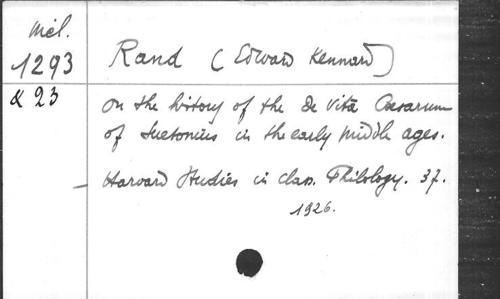 Mél.
1293
& 23
Rand (Edward Kennard)
on the history of the De Vita Caesarum
of Suetonius in the early middle ages.
— Harvard Studies in class. Philology. 37.
1926.